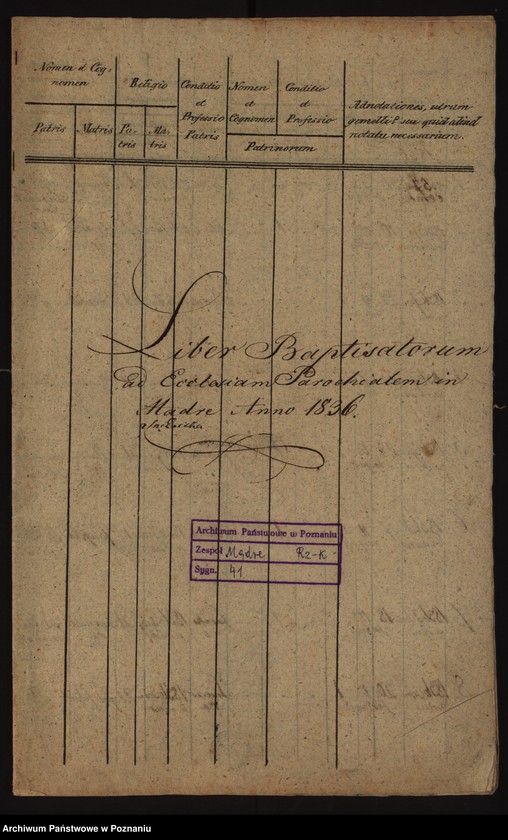 Nomen et Cog-
nomen
Religio
Conditio
et
Professio
Patris
Nomen
et
Cognomen
Conditio
et
Professio
Adnotationes, utrum
gemelli? seu quid aliud
notatu necessarium.
Patris
Matris
Pa-
tris
Ma-
tris
Patrinorum
Liber Baptisatorum
ad Ecclesiam Parochialem in
Mądre Anno 1836.
Archiwum Państwowe w Poznaniu
Zespół Mądre Rz-K
Sygn. 41
Archiwum Państwowe w Poznaniu